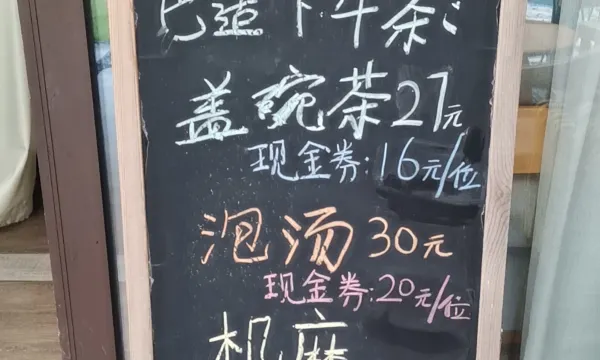 巴适下午茶:
盖碗茶27元
现金券:16元/位
泡汤30元
现金券:20元/位
机麻